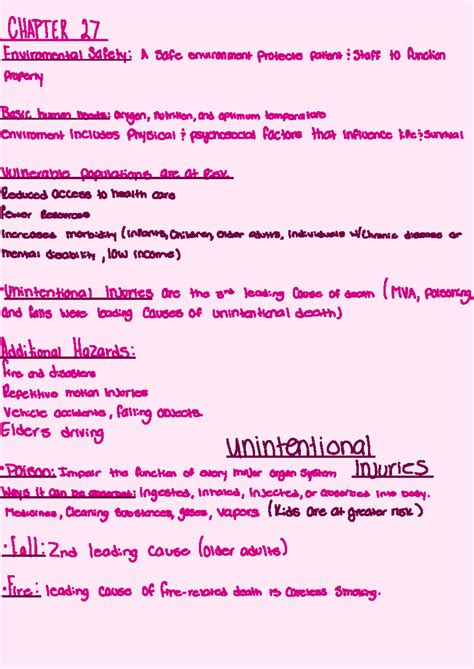 CHAPTER 27
Enviromental Safety: A safe environment protects patient & Staff to function
properly
Basic human needs: oxygen, nutrition, and optimum temperature
Enviroment includes Physical & psychosocial factors that influence life & Survival
Vulnerable populations are at Risk
Reduced access to health care
Fewer Resources
Increased morbidity (infants, Children, older adults, Individuals w/Chronic diseases or
mental disability, low income)
Unintentional Injuries are the 3rd leading Cause of death (MVA, poisoning,
and falls were leading Causes of unintentional death)
Additional Hazards:
Fire and disasters
Repetitive motion Injuries
Vehicle accidents, falling objects.
Elders driving
Unintentional
Injuries
• Poison: Impair the function of every major organ System
Ways it can be absorbed: Ingested, Inhaled, Injected, or absorbed into body.
Medicines, Cleaning Substances, gases, vapors (Kids are at greater risk)
• Fall: 2nd leading cause (older adults)
• Fire: leading cause of fire-related death is Careless Smoking.